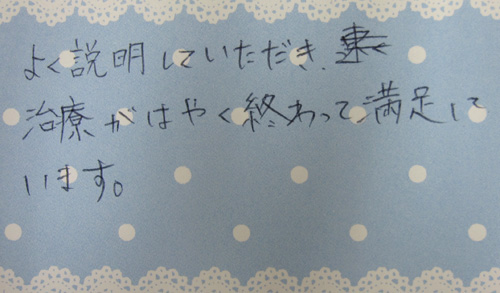 よく説明していただき、
治療がはやく終わって満足して
います。